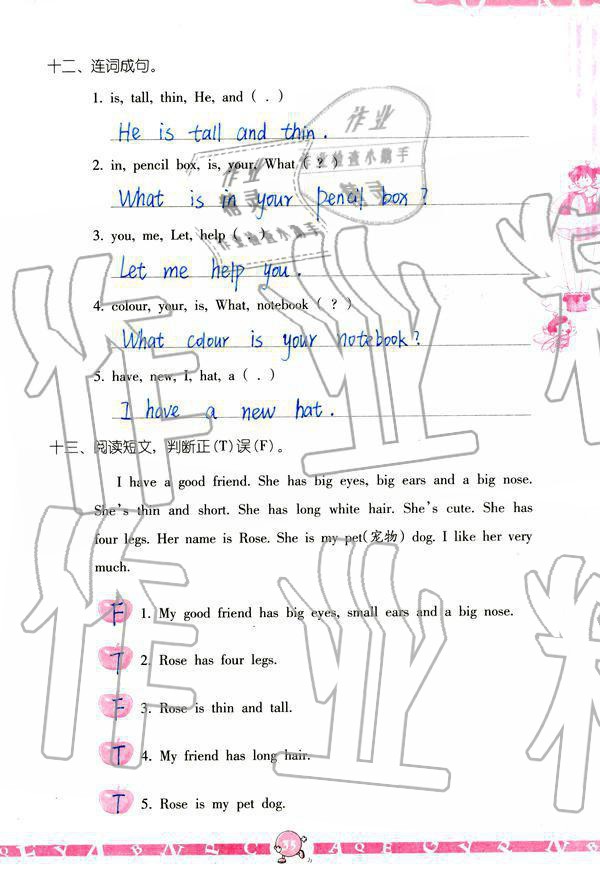 十二、连词成句。
1. is, tall, thin, He, and ( . )
He is tall and thin.
2. in, pencil box, is, your, What ( ? )
What is in your pencil box?
3. you, me, Let, help ( . )
Let me help you.
4. colour, your, is, What, notebook ( ? )
What colour is your notebook?
5. have, new, I, hat, a ( . )
I have a new hat.
十三、阅读短文，判断正(T)误(F)。
I have a good friend. She has big eyes, big ears and a big nose.
She's thin and short. She has long white hair. She's cute. She has
four legs. Her name is Rose. She is my pet(宠物) dog. I like her very
much.
F 1. My good friend has big eyes, small ears and a big nose.
T 2. Rose has four legs.
F 3. Rose is thin and tall.
T 4. My friend has long hair.
T 5. Rose is my pet dog.
作业
作业检查小助手
作业
作业检查小助手
作业